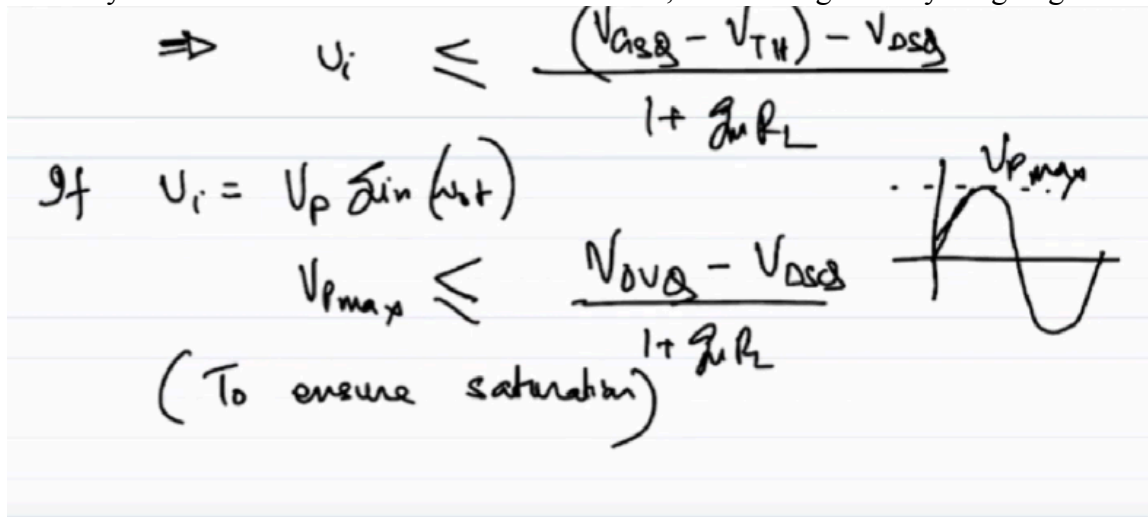 ⇒ v_i ≤ ((V_GSQ - V_TH) - V_DSQ) / (1 + g_m R_L)
If v_i = V_p sin(ω_0 t)
V_Pmax
V_Pmax ≤ (V_OVQ - V_DSQ) / (1 + g_m R_L)
(To ensure saturation)